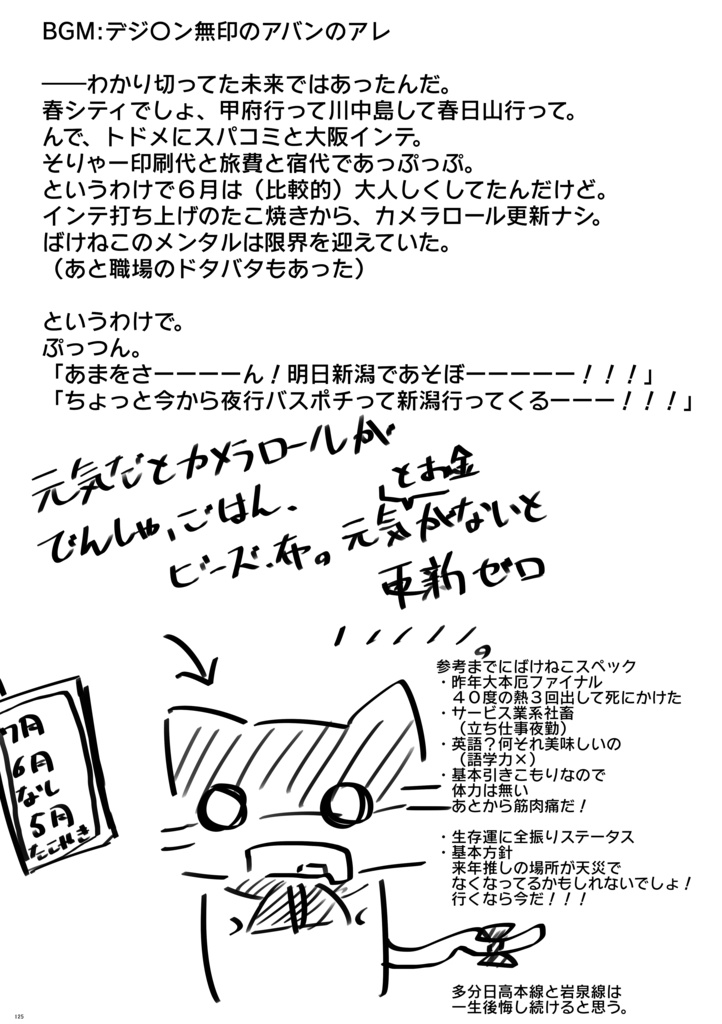 BGM:デジ〇ン無印のアバンのアレ
――わかり切ってた未来ではあったんだ。
春シティでしょ、甲府行って川中島して春日山行って。
んで、トドメにスパコミと大阪インテ。
そりゃー印刷代と旅費と宿代であっぷっぷ。
というわけで６月は（比較的）大人しくしてたんだけど。
インテ打ち上げのたこ焼きから、カメラロール更新ナシ。
ばけねこのメンタルは限界を迎えていた。
（あと職場のドタバタもあった）
というわけで。
ぷっつん。
「あまをさーーーーん！明日新潟であそぼーーーーー！！！」
「ちょっと今から夜行バスポチって新潟行ってくるーーー！！！」
元気だとカメラロールが
でんしゃ、ごはん、
ビーズ、布。元気がないと
とお金
更新ゼロ
、、、、、。
7月
6月
なし
5月
たこやき
参考までにばけねこスペック
・昨年大本厄ファイナル
４０度の熱３回出して死にかけた
・サービス業系社畜
（立ち仕事夜勤）
・英語？何それ美味しいの
（語学力×）
・基本引きこもりなので
体力は無い
あとから筋肉痛だ！
・生存運に全振りステータス
・基本方針
来年推しの場所が天災で
なくなってるかもしれないでしょ！
行くなら今だ！！！
多分日高本線と岩泉線は
一生後悔し続けると思う。
125